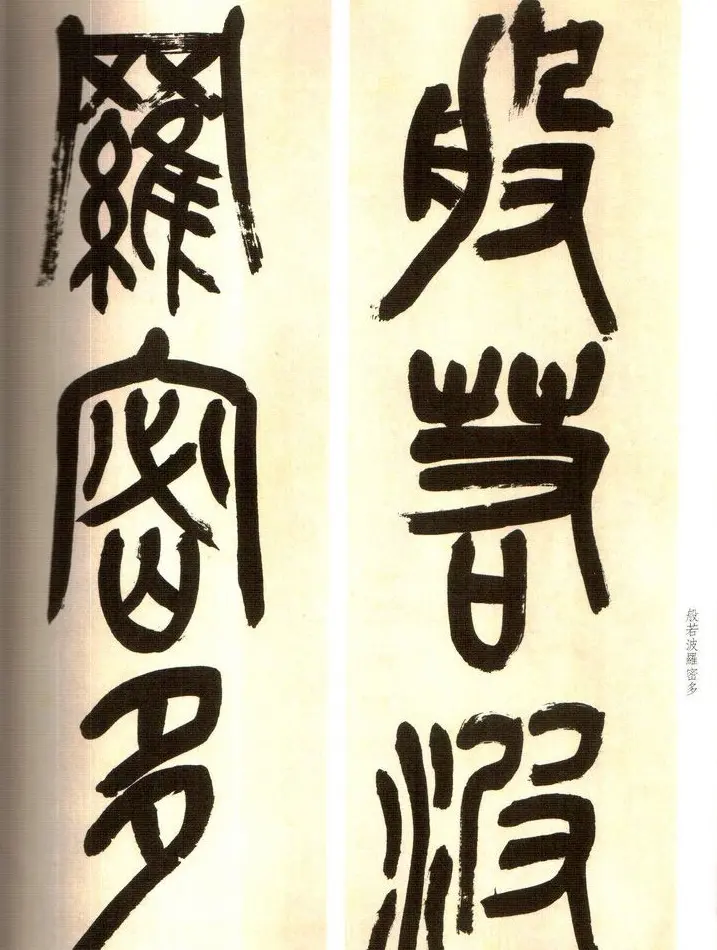 般若波
羅密多
般若波羅密多